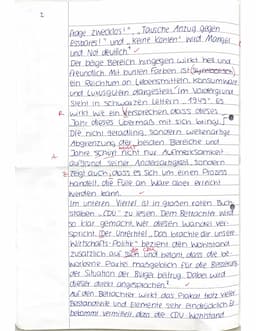 2
frage zwecklos!" "Tausche Anzug gegen
Essbares!" und "Keine Karten" wird Mangel
und Not deutlich.
Der obige Bereich hingegen wirkt hell und
freundlich. Mit bunten Farben ist (symbolisch)
ein Reichtum an Lebensmitteln, Konsumware
und Luxusgütern dargestellt. Im Vordergrund
steht in schwarzen Lettern "1949". Es
R. wirkt wie ein Versprechen, dass dieses
Jahr dieses Übermaß mit sich bringt.
Die nicht geradlinig, sondern wellenartige
Abgrenzung der beiden Bereiche und
A Jahre schafft nicht nur Aufmerksamkeit
aufgrund seiner Andersartigkeit, sondern
Z zeigt auch, dass es sich um einen Prozess
handelt, die Fülle an Ware aber erreicht
werden kann.
Im unteren Viertel ist in großen roten Buch-
staben "CDU" zu lesen. Dem Betrachter wird
so klar gemacht, wer diesen Wandel ver-
spricht. Der Untertitel "Das brachte dir unsre
Wirtschafts-Politik" bezieht den Wohlstand
die CDU
zusätzlich auf sich und betont, dass die be-
worbene Partei maßgeblich für die Besserung
der Situation der Bürger beitrug. Dabei wird
dieser direkt angesprochen.
Auf den Betrachter wirkt das Plakat trotz vieler
Bestandteile und Elemente sehr eindrücklich. Er
bekommt vermittelt, dass die CDU Wohlstand